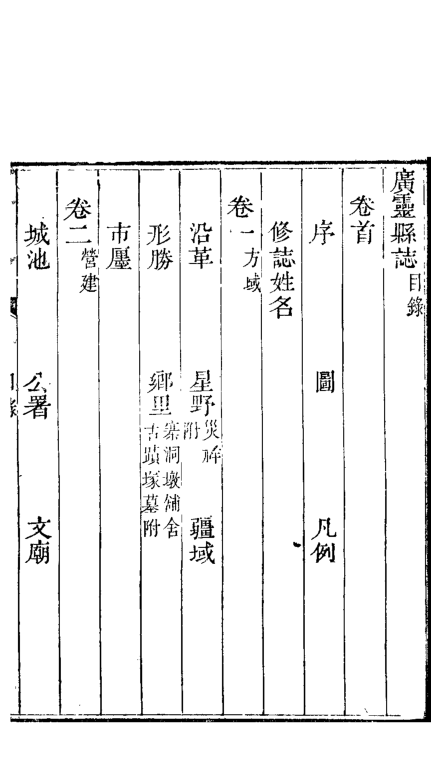 廣靈縣誌目錄
卷首
序 圖 凡例
修誌姓名
卷一方域
沿革 星野災祥附 疆域
形勝 鄉里寨洞墩舖舍古蹟塚墓附
市廛
卷二營建
城池 公署 文廟